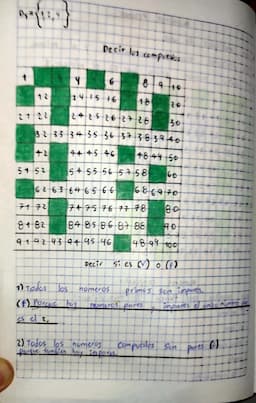 Decir los compuestos
1 4 6 8 9 10
12 14 15 16 18 20
21 22 24 25 26 27 28 30
32 33 34 35 36 37 38 39 40
42 44 45 46 48 49 50
51 52 54 55 56 57 58 60
62 63 64 65 66 68 69 70
72 74 75 76 77 78 80
81 82 84 85 86 87 88 90
91 92 93 94 95 96 98 99 100
Decir si es (V) o (F)
1) Todos los numeros primos son impares
(F) Porque hay numeros pares, impares el unico numero
es el 2,
2) Todos los numeros compuestos son pares (F)
porque tambien hay impares